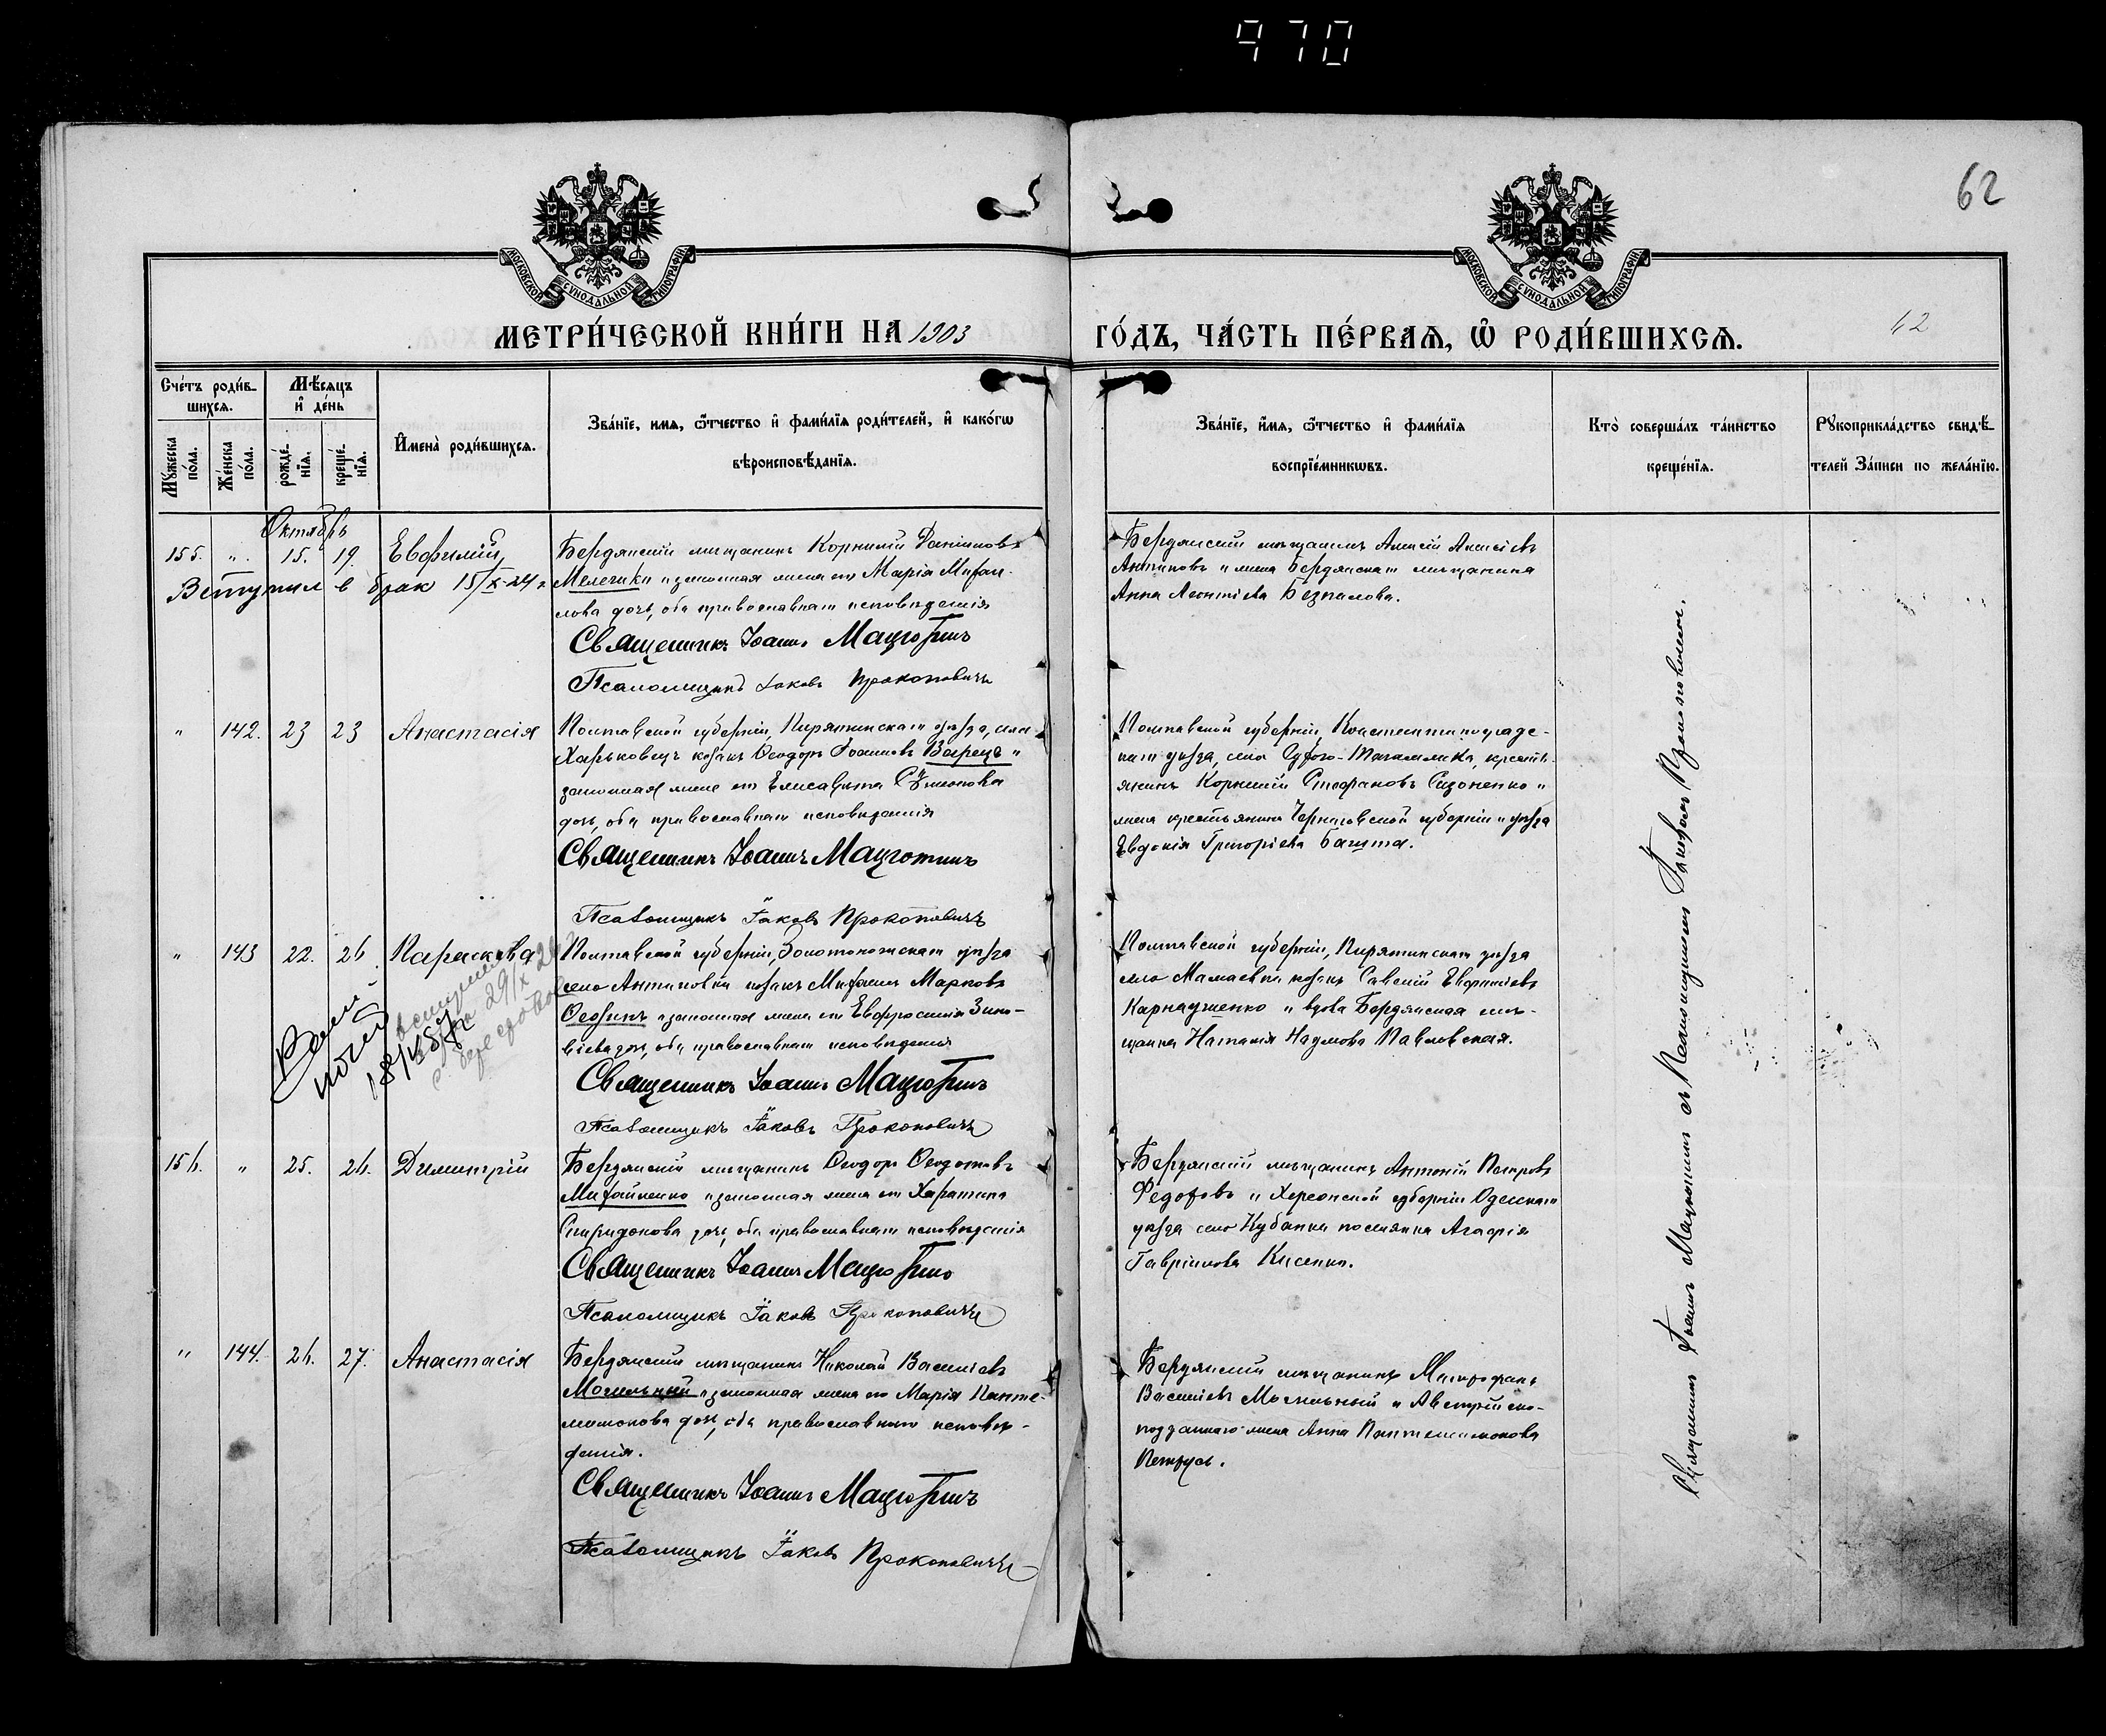 970
62
МОСКОВСКОЙ СѴНОДАЛЬНОЙ ТИПОГРАФІИ
МОСКОВСКОЙ СѴНОДАЛЬНОЙ ТИПОГРАФІИ
МЕТРИ́ЧЕСКОЙ КНИ́ГИ НА 1903
ГО́ДЪ, ЧА́СТЬ ПЕ́РВАѦ, Ѽ РОДИ́ВШИХСѦ.
42
Сче́тъ роди́в-
шихсѧ.
Мѣ́сѧцъ
и҆ де́нь
Мꙋ́жеска
по́ла.
Же́нска
по́ла.
рожде́-
нїѧ.
креще́-
нїѧ.
И҆мена̀ роди́вшихсѧ.
Зва́нїе, имѧ, ѻ҆́тчество и҆ фами́лїѧ роди́телей, и҆ како́гѡ
вѣроисповѣ́данїѧ.
Зва́нїе, и҆́мѧ, ѻ҆́тчество и҆ фами́лїѧ
воспрїе́мникѡвъ.
Кто̀ соверша́лъ та́инство
креще́нїѧ.
Рꙋкоприкла́дство свидѣ́-
телей За́писи по жела́нїю.
Октябрь
155. " 15. 19. Евфимій
Бердянскій мѣщанинъ Корнилій Даніиловъ
Мелешко и законная жена его Марія Михаи-
лова дочь, оба православнаго исповѣданія
Вступил в брак 15/X-24 г
Священникъ Іоаннъ Мацютинъ
Псаломщикъ Іаковъ Прокоповичъ
Бердянскій мѣщанинъ Алексій Алексіевъ
Антиповъ и жена Бердянскаго мѣщанина
Анна Леонтіева Безпалова.
" 142. 23 23 Анастасія
Полтавской губерніи, Пирятинскаго уѣзда, села
Харьковецъ козакъ Ѳеодоръ Іоанновъ и
законная жена его Елисавета
дочь, оба православнаго исповѣданія
Священникъ Іоаннъ Мацютинъ
Псаломщикъ Іаковъ Прокоповичъ
Полтавской губерніи, Константиноградс-
каго уѣзда, села Сухого-Тагамлика, кресть-
янинъ Корнилій Стефановъ Сизоненко и
жена крестьянина Черниговской губерніи и уѣзда
Евдокія Григоріева Башта.
" 143 22. 26. Параскева
Полтавской губерніи, Золотоношскаго уѣзда
село Антиповки козакъ Михаилъ Марковъ
и законная жена его Евфросинія Зино-
віева дочь, оба православнаго исповѣданія
Священникъ Іоаннъ Мацютинъ
Псаломщикъ Іаковъ Прокоповичъ
Полтавской губерніи, Пирятинскаго уѣзда
село Мамаевки козакъ Савелій Евфиміевъ
Карнаушенко и вдова Бердянская мѣ-
щанка Наталія Наумова Павловская.
156. " 25. 26. Димитрій
Бердянскій мѣщанинъ Ѳеодоръ Ѳеодотовъ
Михайленко и законная жена его Харитина
Спиридонова дочь, оба православнаго исповѣданія
Священникъ Іоаннъ Мацютинъ
Псаломщикъ Іаковъ Прокоповичъ
Бердянскій мѣщанинъ Антоній Петровъ
Федоровъ и Херсонской губерніи Одесскаго
уѣзда село Кубанки поселянка Агафія
Гавріилова Кисенко.
" 144. 26. 27. Анастасія
Бердянскій мѣщанинъ Николай Василіевъ
Могильный и законная жена его Марія Панте-
леимонова дочь, оба православнаго исповѣ-
данія.
Священникъ Іоаннъ Мацютинъ
Псаломщикъ Іаковъ Прокоповичъ
Бердянскій мѣщанинъ Митрофанъ
Василіевъ Могильный и Австрійско-
подданнаго жена Анна Пантелеимонова
Петрусь.
Священникъ Іоаннъ Мацютинъ съ Псаломщикомъ Іаковомъ Прокоповичемъ.